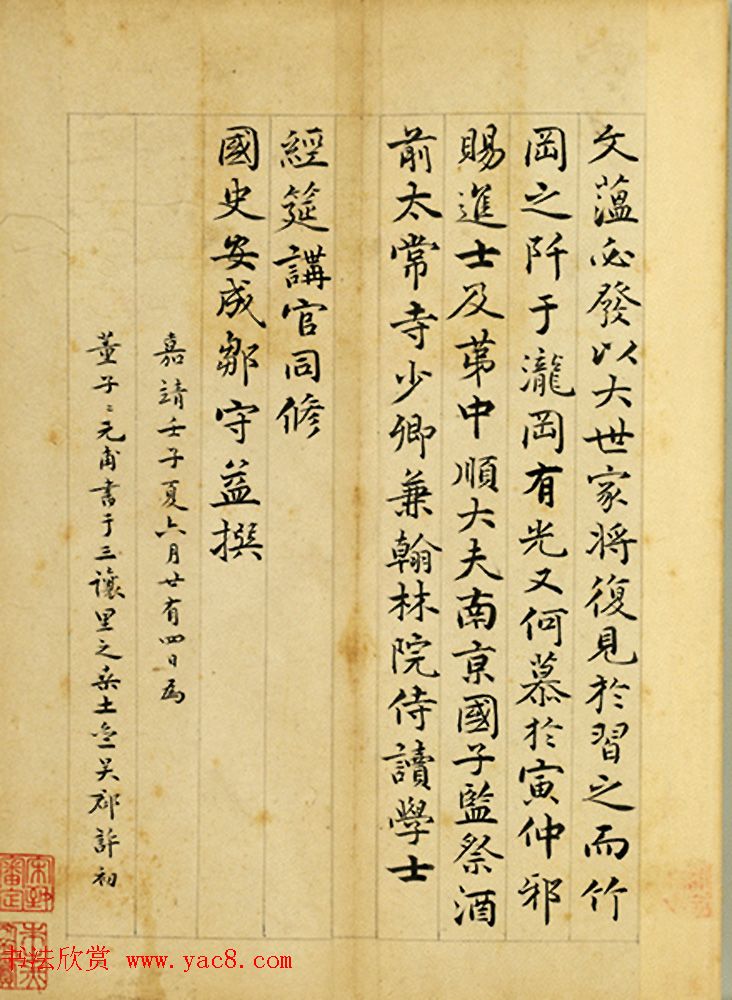 文蘊必發以大世家將復見於習之而竹
岡之阡于瀧岡有光又何慕於寅仲邪
賜進士及第中順大夫南京國子監祭酒
前太常寺少卿兼翰林院侍讀學士
經筵講官同修
國史安成鄒守益撰
嘉靖壬子夏六月廿有四日為
董子〻元甫書于三讓里之桑土 吴郡許初
书法欣赏 www.yac8.com